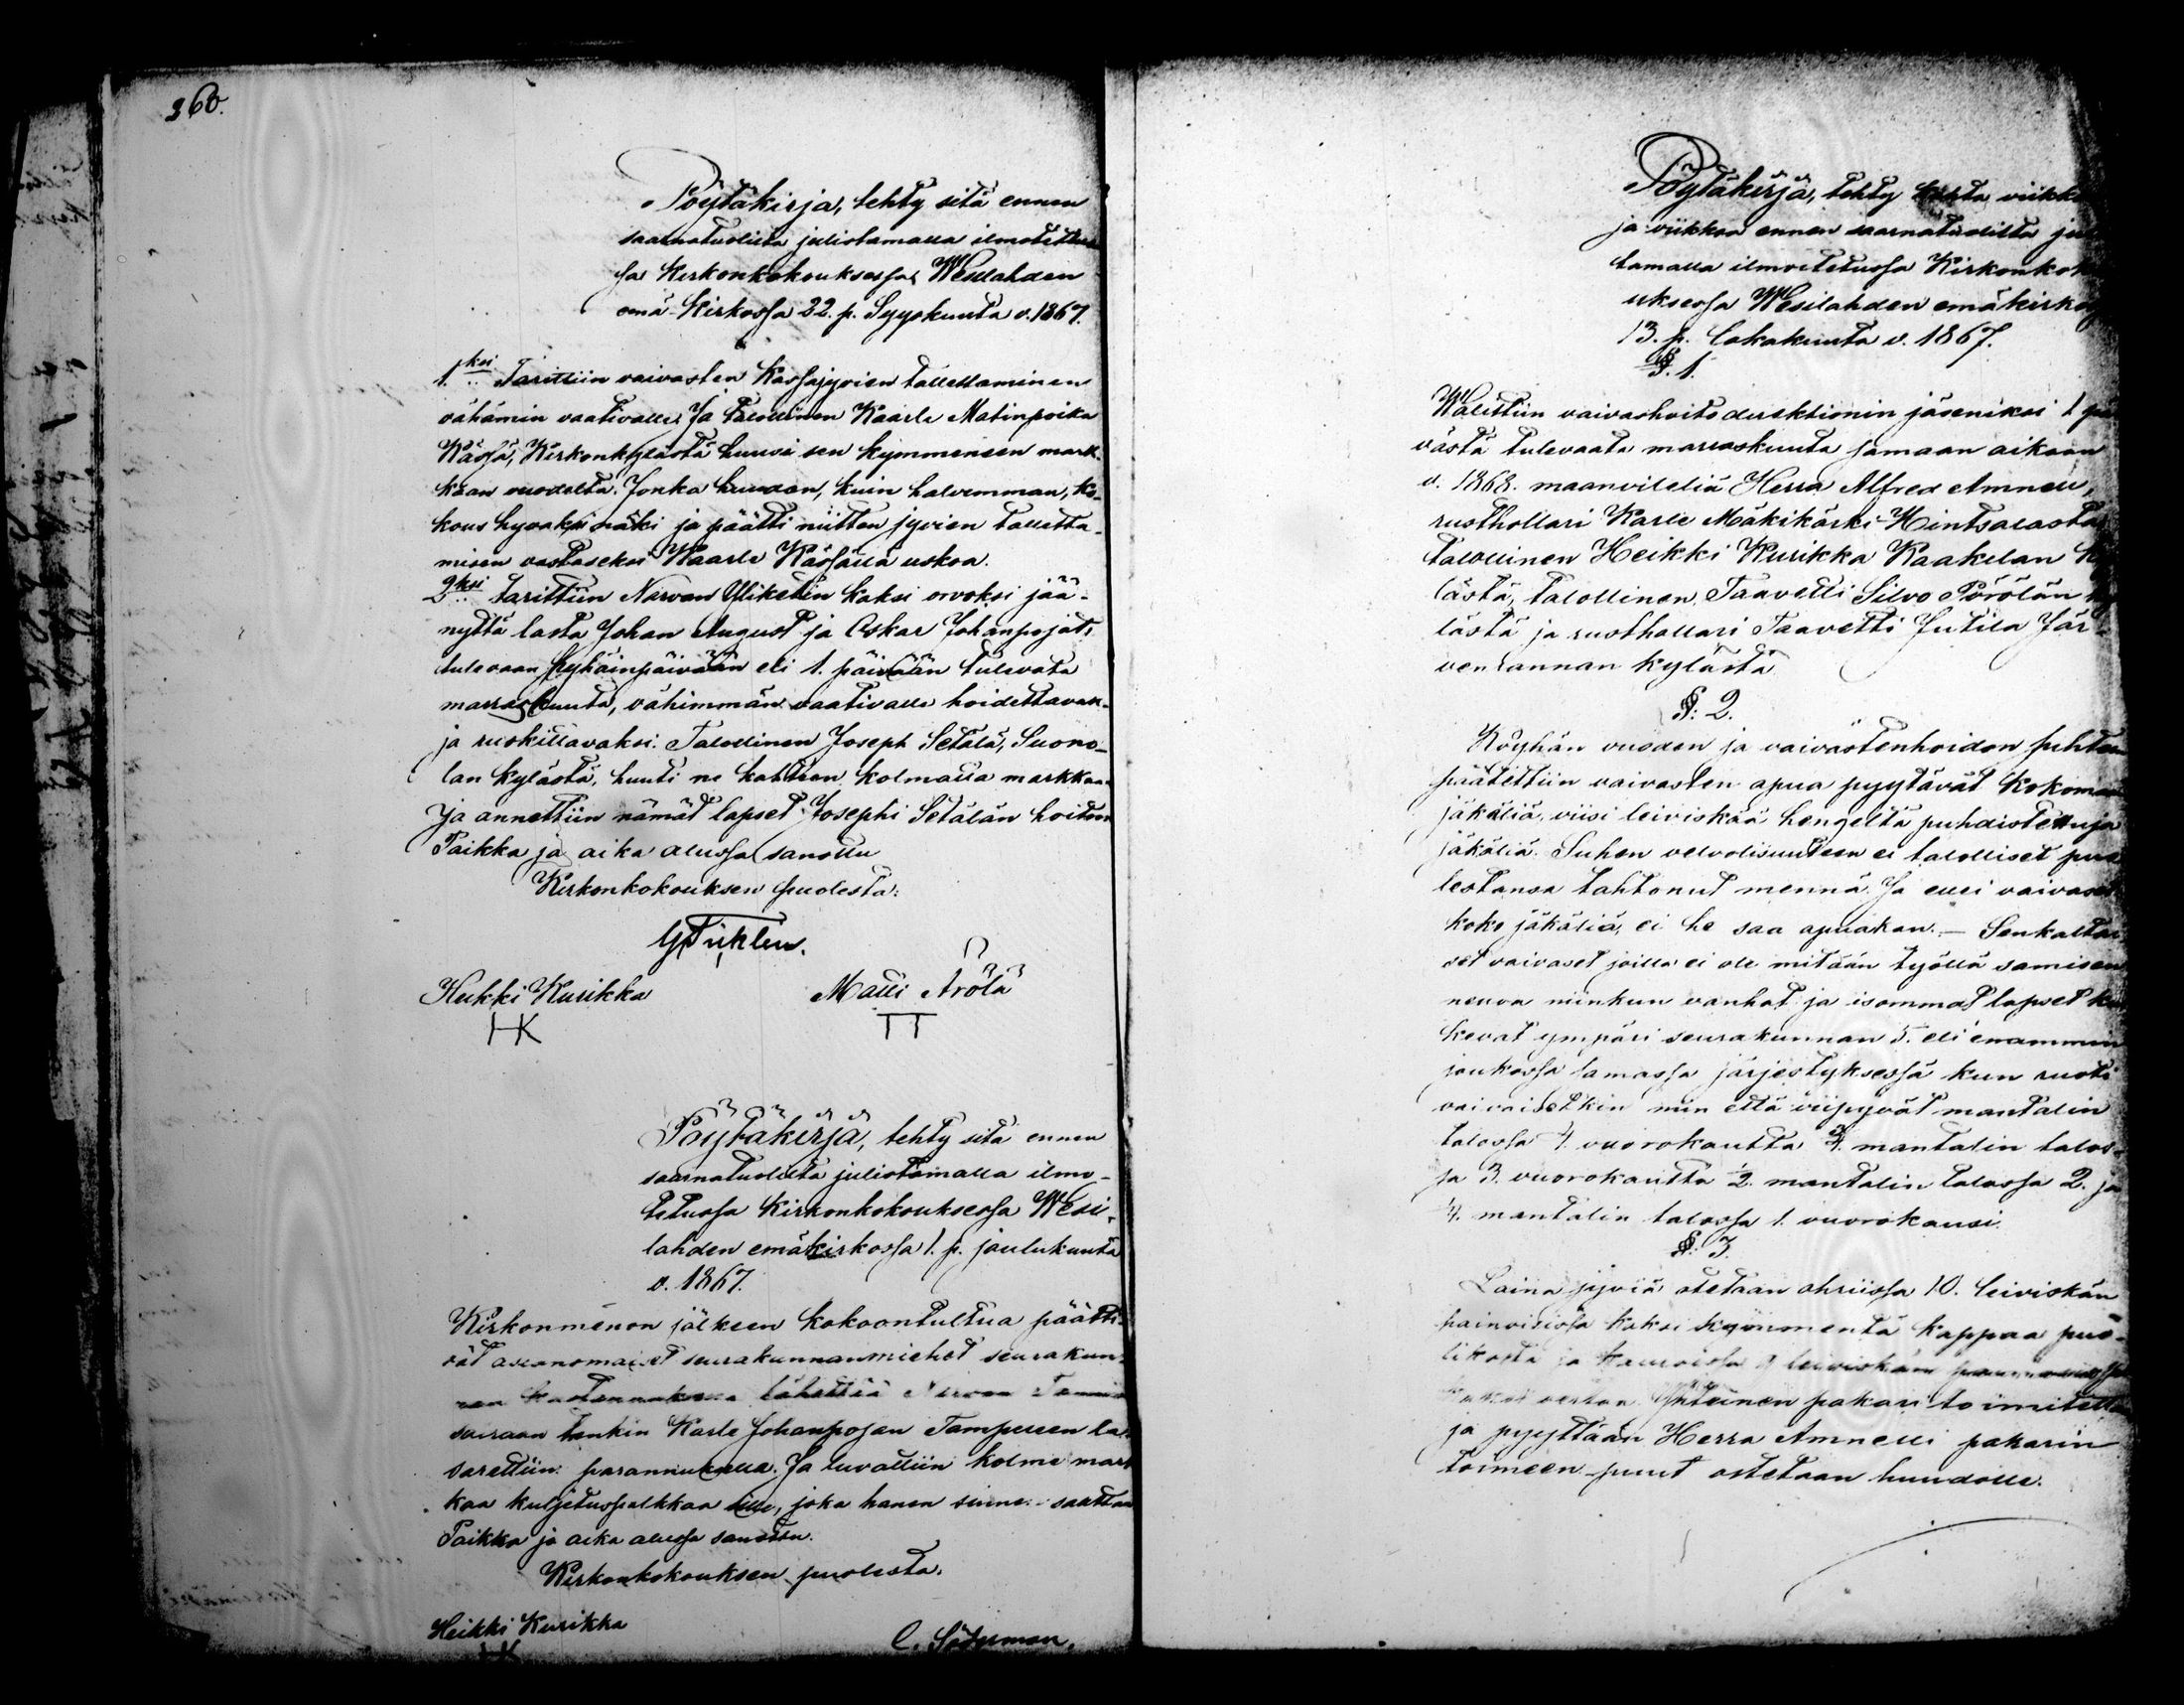 360.
Pöytäkirja, tehty sitä ennen
saarnatuolilta julistamalla ilmotettu
sa Kirkonkokouksessa Wesilahden
emä Kirkossa 22. p. Syyskuuta v. 1867.
1.ksi Tarittiin vaivasten Kassajyvien tallettaminen
vähämin vaativalle. Ja talollinen Kaarle Matinpoika
Kässä, Kirkonkylästä huusi sen kymmeneen mark-
kaan vuodelta. Jonka huudon, kuin halvemman, Ko-
kous hyväksi näki ja päätti niitten jyvien talletta-
misen vastaseksi Kaarle Kässällä uskoa.
2ksi tarittiin Narvan kaksi orvoksi jää-
nyttä lasta Johan August ja Oskar Johanpojat,
tulevaan pyhäinpäivään eli 1. päivään tulevata
marraskuuta, vähimmän vaativalle hoidettavak-
ja ruokittavaksi. Talollinen Joseph Setälä, Suono-
lan kylästä, huuti ne kahteen kolmatta markkaa
Ja annettiin nämät lapset Josephi Setälän hoitoon
Paikka ja aika alussa sanottu
Kirkonkokouksen puolesta:
Heikki Kurikka Matti Arola
HK TT
Pöytäkirja, tehty sitä ennen
saarnatuolilta julistamalla ilmo-
tetussa Kirkonkokouksessa Wesi-
lahden emäkirkossa 1. p. joulukuuta
v. 1867.
Kirkonmenon jälkeen kokoontultua päätti-
vät asianomaiset seurakunnanmiehet seurakun-
nan lähettää
sairaan Karle Johanpojan Tampereen la-
sarettiin parannukselle. Ja luvattiin kolme mark
kaa kuljetuspalkkaa sille, joka hänen sinne saattaa
Paikka ja aika alussa sanottu.
Kirkonkokouksen puolesta.
Heikki Kurikka
HK
Pöytäkirja, tehty viikko
ja viikkoa ennen saarnatuolilta ju
tamalla ilmoitetussa Kirkonkok
uksessa Wesilahden emäkirko
13. p. lokakuuta v. 1867.
§. 1.
Walittiin vaivashoitodirektionin jäseniksi 1 päi
västä tulevaata marraskuuta samaan aikaan
v. 1868. maanviljeliä Herra Alfred Amnell,
rusthollari Karle Mäkikärki Hintsalasta
talollinen Heikki Kurikka Kaakilan ky
lästä, talollinen Taavetti Silvo Pörölän ky
lästä ja rusthallari Taavetti Jutila Jär-
venrannan kylästä
§. 2.
Köyhän vuoden ja vaivastenhoidon suhteen
päätettiin vaivasten apua pyytävät kokoma
jäkäliä, viisi leiviskää hengeltä puhdistettuja
jäkäliä. Siihen velvolisuuteen ei talolliset puo
lestansa tahtonut mennä. Ja ellei vaivaset
koko jäkäliä, ei he saa apuakan. — Senkaltai
set vaivaset joilla ei ole mitään työllä samisen
neuvoa niinkun vanhat ja isommat lapset ku
kevat ympäri seurakunnan 5. eli enammin
joukossa samassa järjestyksessä kun ruoti
vaivaisetkin niin että viipyvät mantalin
talossa 4. vuorokautta 3/4. mantalin talos-
sa 3. vuorokautta 1/2. mantalin talossa 2. ja
1/4. mantalin talossa 1. vuorokausi.
§. 3.
Laina jyviä otetaan ohrissa 10. leiviskän
painoisissa kaksi kymmentä kappaa puo-
likosta ja kauroissa leiviskän
Yhteinen pakari toimitetta
ja pyyttään Herra Amnelli pakarin
toimeen puut ostetaan huudolle.